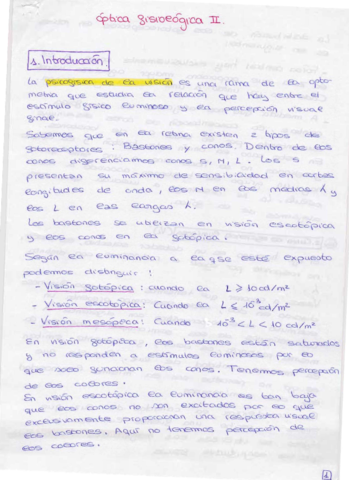 óptica fisiológica II.
1. Introducción
La psicofísica de la visión es una rama de la opto-
metría que estudia la relación que hay entre el
estímulo físico luminoso y la percepción visual
final.
Sabemos que en la retina existen 2 tipos de
fotorreceptores: Bastones y conos. Dentro de los
conos diferenciamos conos S, M, L. Los S
presentan su máximo de sensibilidad en cortas
longitudes de onda, los M en los medias λ y
los L en las largas λ.
Los bastones se utilizan en visión escotópica
y los conos en la fotópica.
Según la luminancia a la que esté expuesto
podemos distinguir:
- Visión fotópica: cuando la L ⩾ 10 cd/m²
- Visión escotópica: Cuando la L ⩽ 10⁻³ cd/m²
- Visión mesópica: Cuando 10⁻³ < L < 10 cd/m²
En visión fotópica, los bastones están saturados
y no responden a estímulos luminosos por lo
que solo funcionan los conos. Tenemos percepción
de los colores.
En visión escotópica la luminancia es tan baja
que los conos no son excitados por lo que
exclusivamente proporcionan una respuesta visual
los bastones. Aquí no tenemos percepción de
los colores.
1